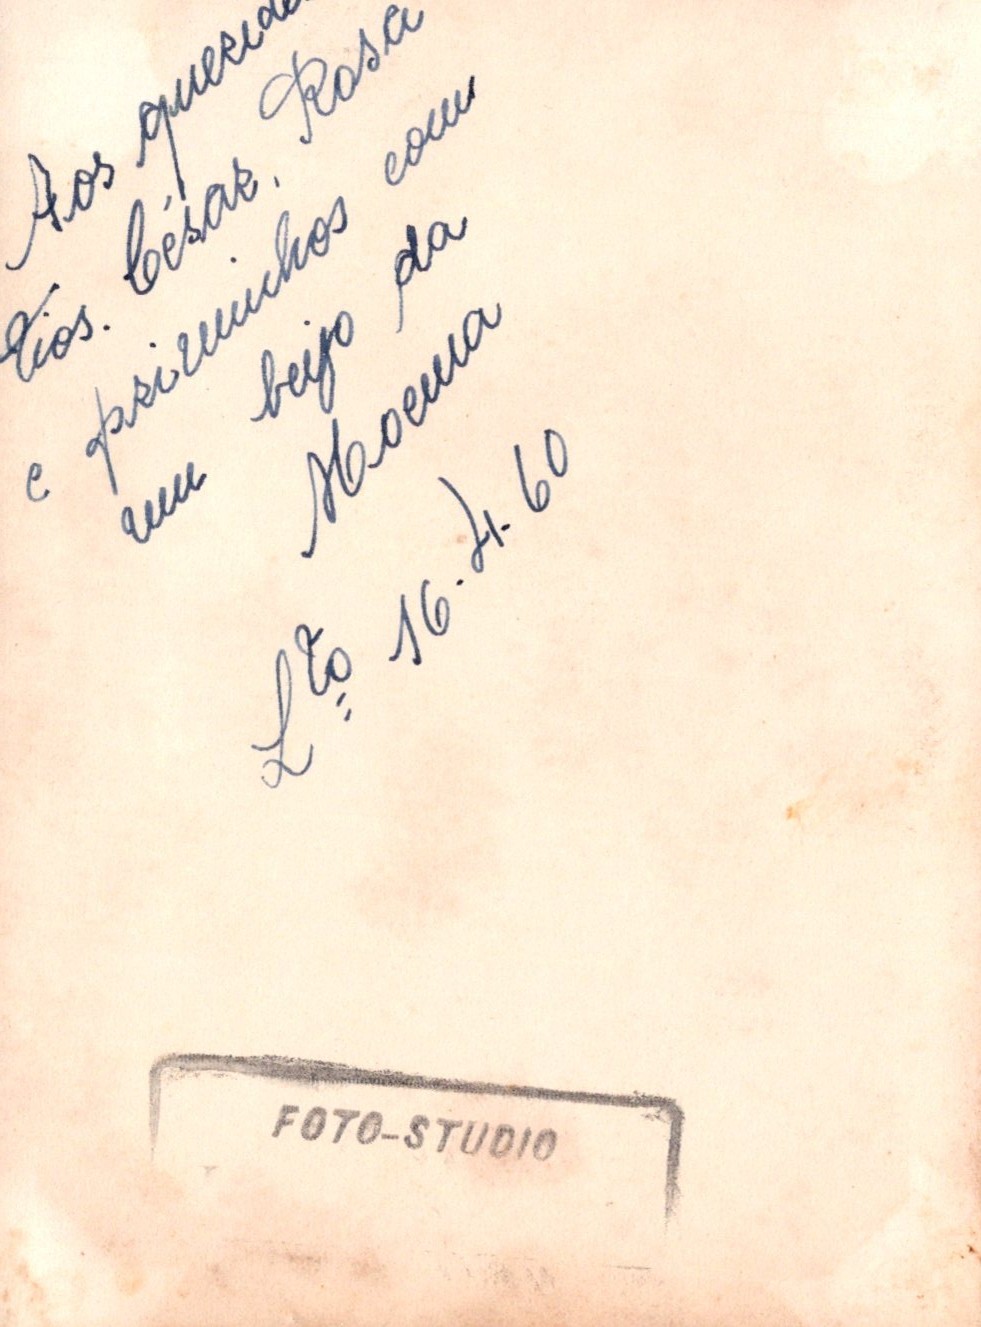 Aos querido
tios. César. Rosa
e priminhos com
um beijo da
Moema
Lto 16.4.60
FOTO-STUDIO